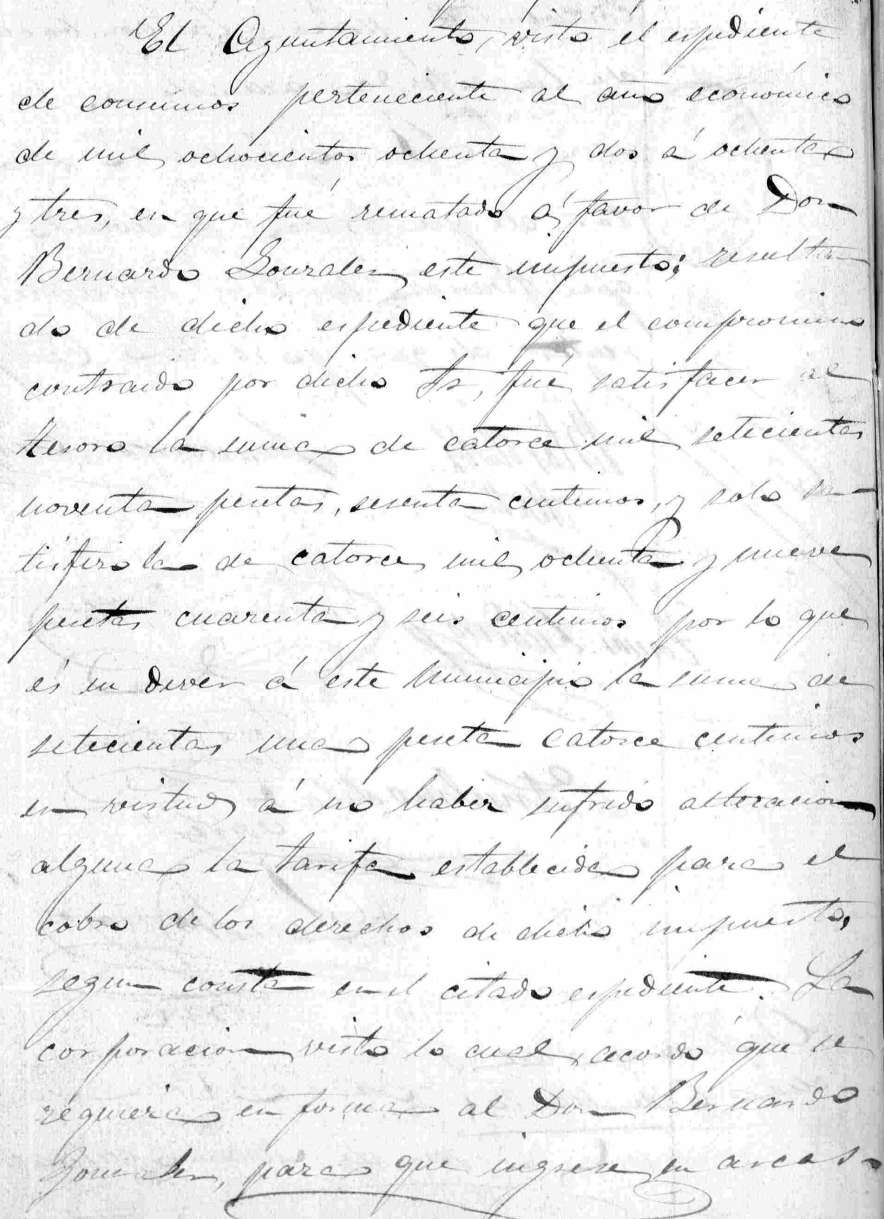 El Ayuntamiento, visto el espediente
de consumos perteneciente al año económico
de mil ochocientos ochenta y dos á ochenta
y tres, en que fué rematado á favor de Don
Bernardo Gonzalez este impuesto; resultan
do de dicho espediente que el compromiso
contraido por dicho Sr, fué satisfacer al
tesoro la suma de catorce mil setecientas
noventa pesetas, sesenta centimos, y solo sa-
tisfizo la de catorce mil ochenta y nueve
pesetas cuarenta y seis centimos por lo que
és en dever á este Municipio la suma de
setecientas una peseta catorce centimos
en virtud á no haber sufrido alteracion
alguna la tarifa establecida para el
cobro de los derechos de dicho impuesto,
segun consta en el citado espediente. La
corporacion visto lo cual, acordó que se
requiera en forma al Don Bernardo
Gonzalez, para que ingrese en arcas